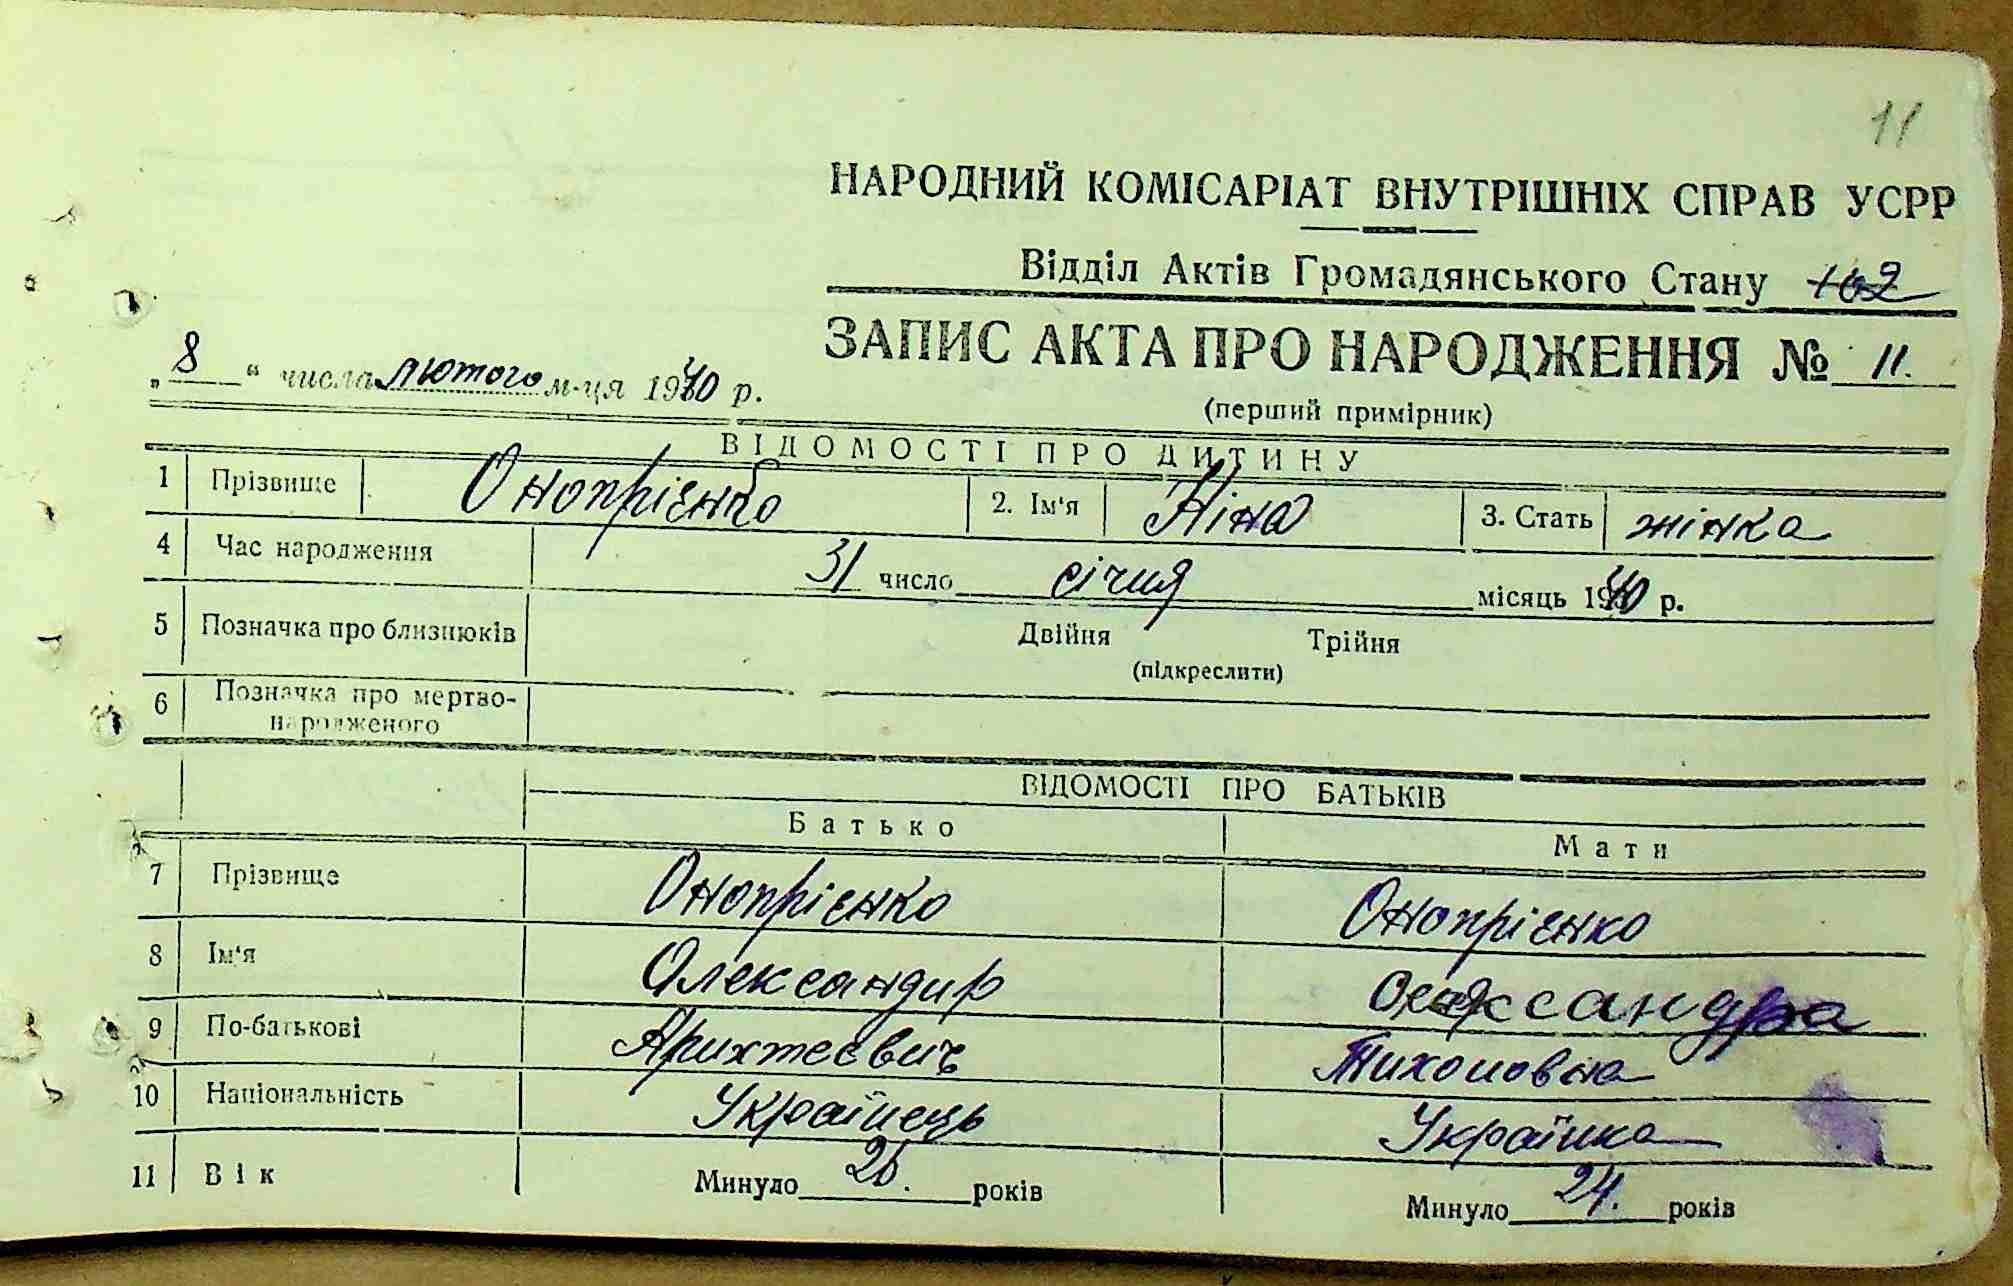 11
НАРОДНИЙ КОМІСАРІАТ ВНУТРІШНІХ СПРАВ УСРР
Відділ Актів Громадянського Стану 102
ЗАПИС АКТА ПРО НАРОДЖЕННЯ № 11.
„8“ числа лютого м-ця 1940 р.
(перший примірник)
ВІДОМОСТІ ПРО ДИТИНУ
1 Прізвище Онопрієнко 2. Ім'я Ніна 3. Стать жінка
4 Час народження 31 число січня місяць 1940 р.
5 Позначка про близнюків Двійня Трійня
(підкреслити)
6 Позначка про мертво-
народженого
ВІДОМОСТІ ПРО БАТЬКІВ
Батько Мати
7 Прізвище Онопрієнко Онопрієнко
8 Ім'я Олександир Олександра
9 По-батькові Архитеєвич Тихоновна
10 Національність Українець Українка
11 Вік Минуло років Минуло 24. років